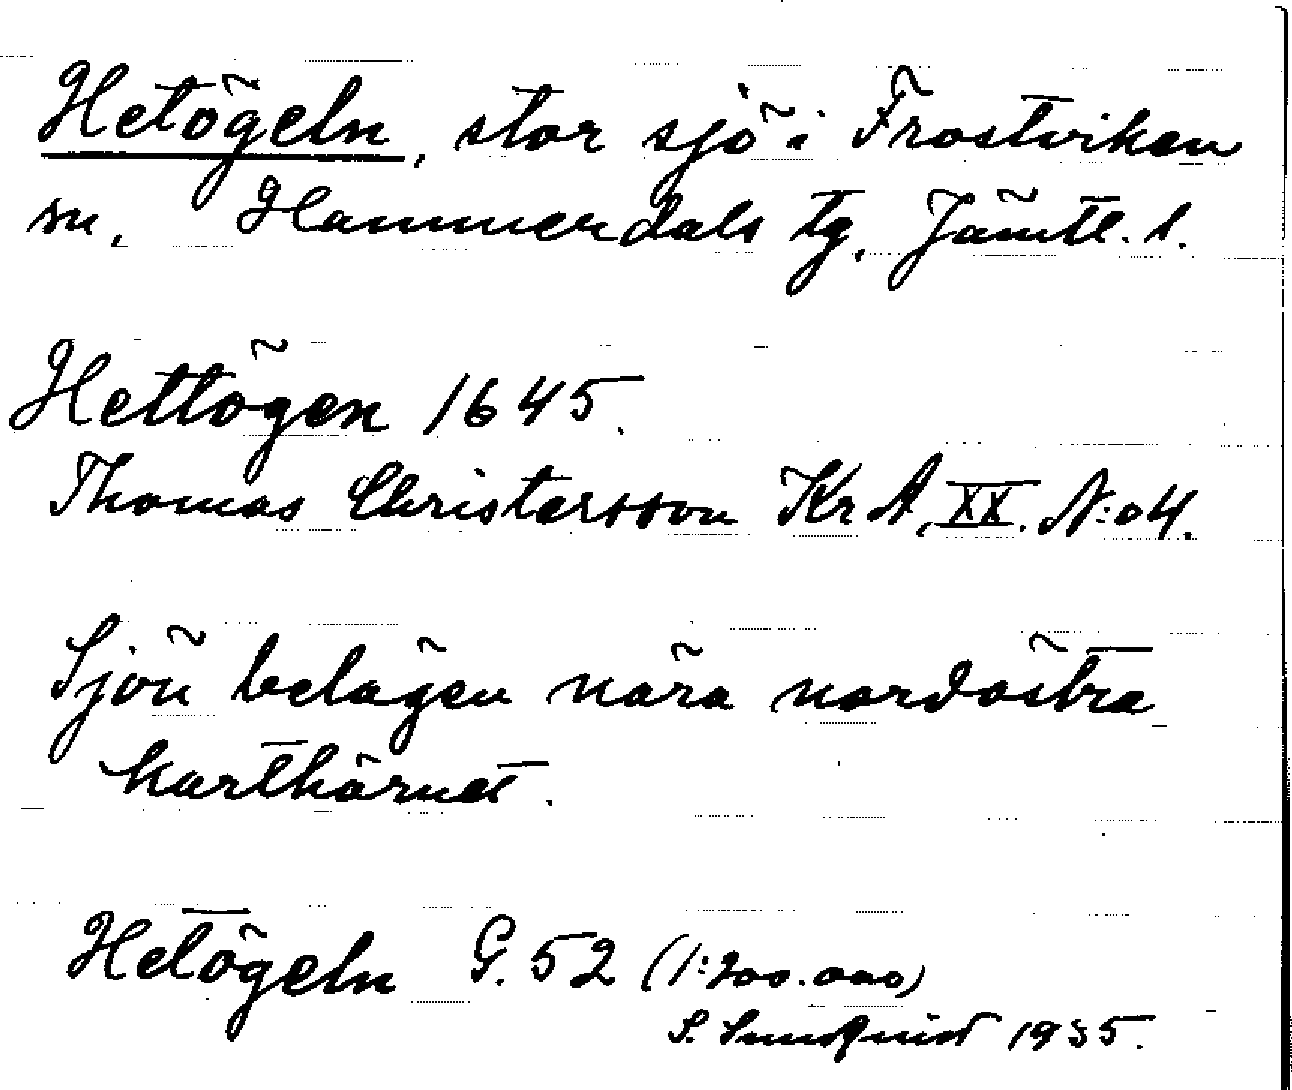 Hetögeln, stor sjö i Frostviken
sn, Hammerdals tg, Jämtl. l.
Hettögen 1645.
Thomas Christersson Kr A, XX. N:o 4.
Sjön belägen nära nordöstra
karthörnet.
Hetögeln G. 52 (1:200.000)
S. Sundquist 1935.